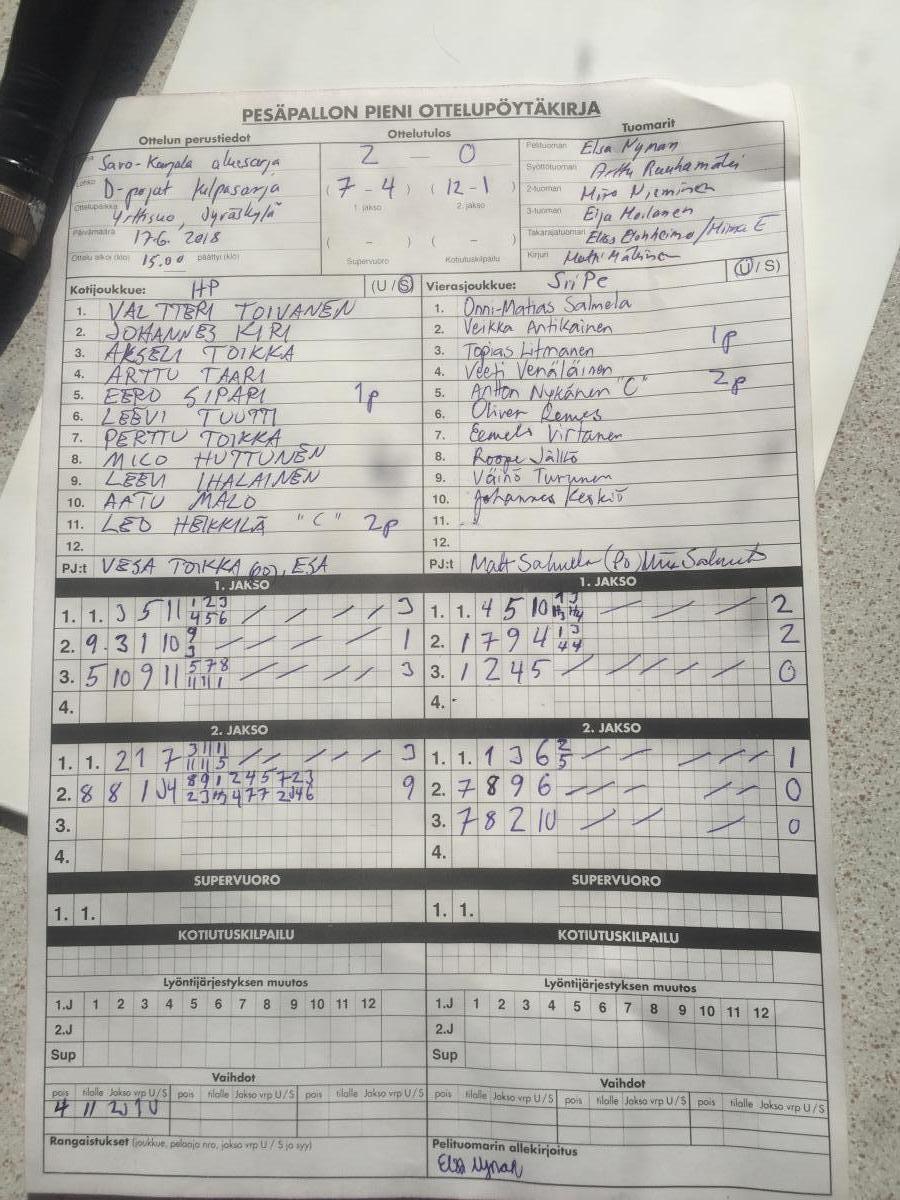 PESÄPALLON PIENI OTTELUPÖYTÄKIRJA
Ottelun perustiedot
Savo-Karjala aluesarja
Lohko D-pojat kilpasarja
Ottelupaikka Yrttisuo, Jyväskylä
Päivämäärä 17.6. 2018
Ottelu alkoi (klo) 15.00 päättyi (klo)
Ottelutulos
2 — 0
( 7 - 4 ) ( 12 - 1 )
1. jakso 2. jakso
( - ) ( - )
Supervuoro Kotiutuskilpailu
Tuomarit
Pelituomari Elsa Nyman
Syöttötuomari Arttu
2-tuomari Miro Nieminen
3-tuomari Eija Moilanen
Takarajatuomari
Kirjuri Matti
Kotijoukkue: HP (U/S)
1. VALTTERI TOIVANEN
2. JOHANNES KIRI
3. AKSELI TOIKKA
4. ARTTU TAARI
5. EERO SIPARI 1p
6. LEEVI TUUTTI
7. PERTTU TOIKKA
8. MICO HUTTUNEN
9. LEEVI IHALAINEN
10. AATU MALO
11. LEO HEIKKILÄ "C" 2p
12.
PJ:t VESA TOIKKA (po), ESA
Vierasjoukkue: SiiPe (U/S)
1. Onni-Matias Salmela
2. Veikka Antikainen 1p
3. Topias Litmanen
4. Veeti Venäläinen 2p
5. Anton Nykänen "C"
6. Oliver Remes
7. Eemeli Virtanen
8. Roope Jälkö
9. Väinö Turunen
10. Johannes Keskiö
11.
12.
PJ:t Matt Salmela (Po)
1. JAKSO
1. 1. 3 5 11 1 2 3 3
4 5 6
2. 9 3 1 10 9 1
3
3. 5 10 9 11 5 7 8 3
11 11 1
4.
1. JAKSO
1. 1. 4 5 10 2
2. 1 7 9 4 1 3 2
4 4
3. 1 2 4 5 0
4.
2. JAKSO
1. 1. 2 1 7 3 11 11 3
11 11 5
2. 8 8 1 J4 8 9 1 2 4 5 7 2 3 9
3.
4.
2. JAKSO
1. 1. 1 3 6 2 1
5
2. 7 8 9 6 0
3. 7 8 2 10 0
4.
SUPERVUORO
1. 1.
SUPERVUORO
1. 1.
KOTIUTUSKILPAILU
KOTIUTUSKILPAILU
Lyöntijärjestyksen muutos
1.J 1 2 3 4 5 6 7 8 9 10 11 12
2.J
Sup
Lyöntijärjestyksen muutos
1.J 1 2 3 4 5 6 7 8 9 10 11 12
2.J
Sup
Vaihdot
pois tilalle Jakso vrp U/S pois tilalle Jakso vrp U/S pois tilalle Jakso vrp U/S
4 11 2J 1 U
Vaihdot
pois tilalle Jakso vrp U/S pois tilalle Jakso vrp U/S pois tilalle Jakso vrp U/S
Rangaistukset (joukkue, pelaaja nro, jakso vrp U / S ja syy)
Pelituomarin allekirjoitus
Elsa Nyman